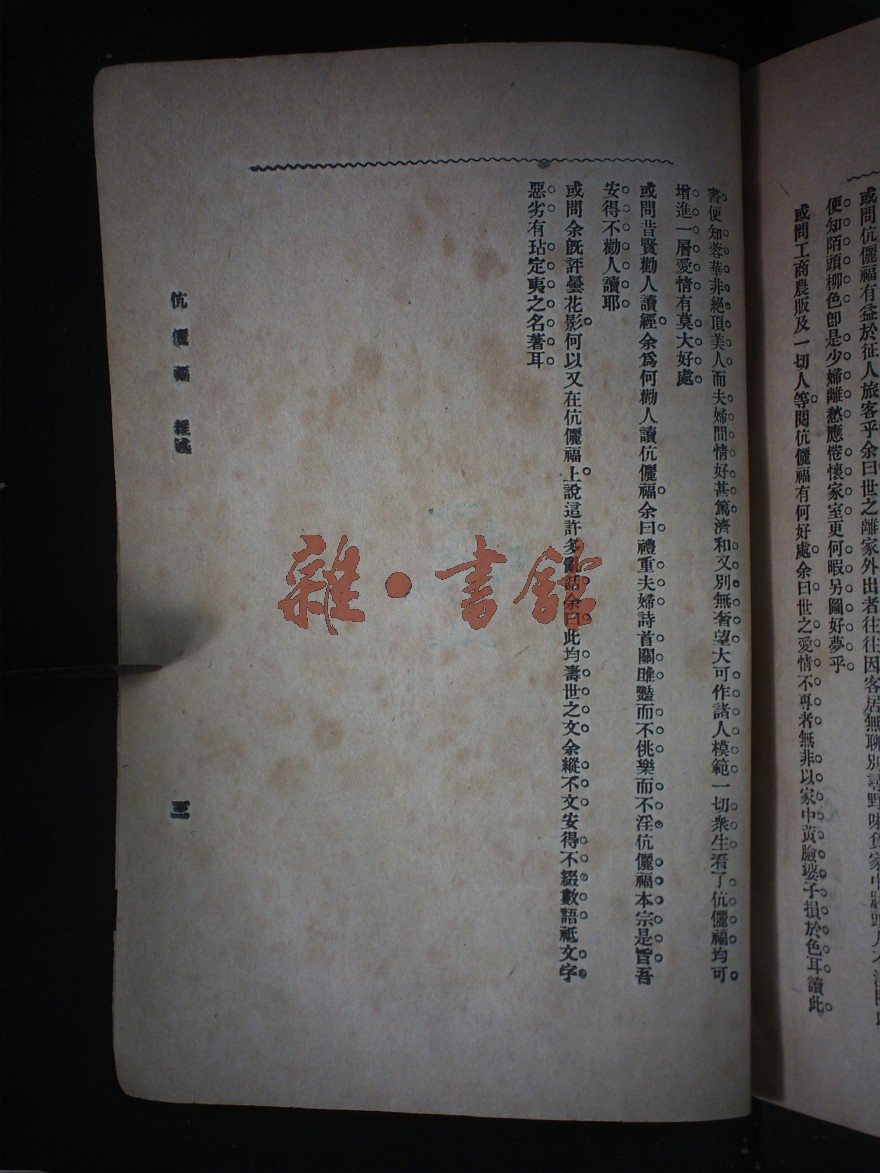 或問伉儷福有益於征人旅客乎余曰世之離家外出者往往因客居無聊別尋野味
便知陌頭柳色卽是少婦離愁應惓懷家室更何暇另圖好夢乎
或問工商農販及一切人等閱伉儷福有何好處余曰世之愛情不專者無非以家中黃臉婆子損於色耳讀此
書便知蓉華非絕頂美人而夫婦間情好甚篤濟和又別無奢望大可作諸人模範一切衆生看了伉儷福均可
增進一層愛情有莫大好處
或問昔賢勸人讀經余爲何勸人讀伉儷福余曰禮重夫婦詩首關雎豔而不佻樂而不淫伉儷福本宗是旨吾
安得不勸人讀耶
或問余旣評曇花影何以又在伉儷福上說這許多話余曰此均壽世之文余縱不文安得不綴數語祗文字
惡劣有玷定夷之名著耳
伉儷福 雜述
三
雜·書館